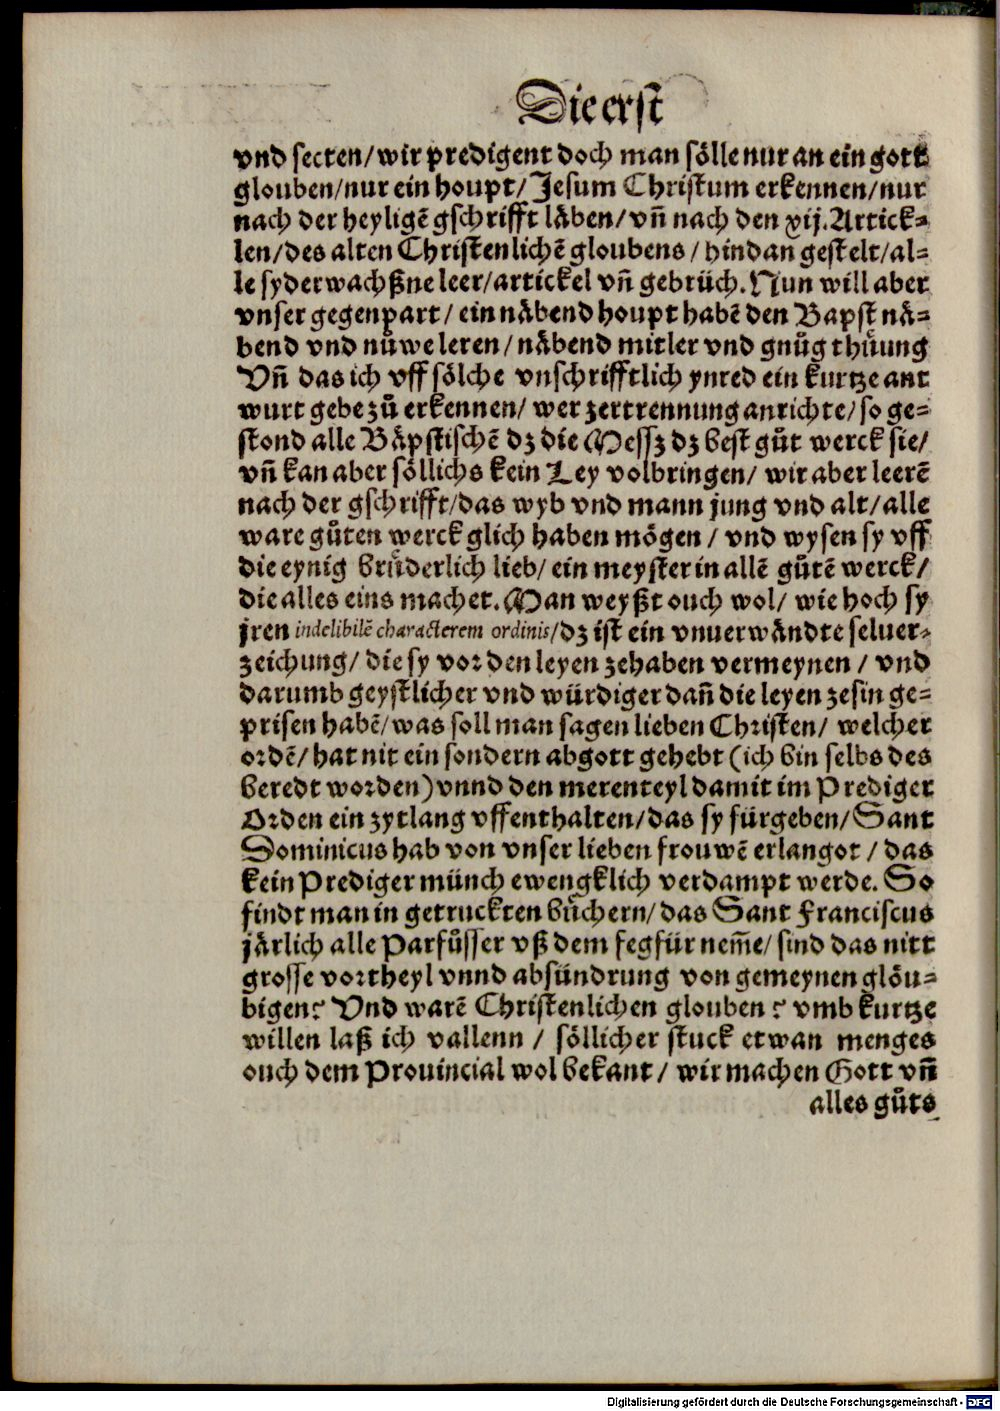 Die erst
vnd secten/wir predigent doch man sölle nur an ein gott
glouben/nur ein houpt/Jesum Christum erkennen/nur
nach der heyligē gschrifft läben/vn̄ nach den xij. Artick-
len/des alten Christenlichē gloubens/hindan gestelt/al-
le syder wachßne leer/artickel vn̄ gebrüch. Nun will aber
vnser gegenpart/ein näbend houpt habē den Bapst nä-
bend vnd nüwe leren/näbend mitler vnd gnůg thůung
Vn̄ das ich vff sölche vnschrifftlich ynred ein kurtze ant
wurt gebe zů erkennen/wer zertrennung anrichte/so ge-
stond alle Bäpstischē dz die Messz dz best gůt werck sie/
vn̄ kan aber söllichs kein Ley volbringen/wir aber leerē
nach der gschrifft/das wyb vnd mann jung vnd alt/alle
ware gůten werck glich haben mögen/vnd wysen sy vff
die eynig brůderlich lieb/ein meyster in allē gůtē werck/
die alles eins machet. Man weyßt ouch wol/wie hoch sy
jren indelibilē characterem ordinis/dz ist ein vnuerwändte seluer-
zeichung/die sy vor den leyen zehaben vermeynen/vnd
darumb geystlicher vnd würdiger dan̄ die leyen zesin ge-
prisen habē/was soll man sagen lieben Christen/welcher
ordē/hat nit ein sondern abgott gehebt (ich bin selbs des
beredt worden) vnnd den merenteyl damit im Prediger
Orden ein zytlang vffenthalten/das sy fürgeben/Sant
Dominicus hab von vnser lieben frouwē erlangot/das
kein Prediger münch ewengklich verdampt werde. So
findt man in getruckten bůchern/das Sant Franciscus
järlich alle Parfůsser vß dem fegfür nem̄e/sind das nitt
grosse vortheyl vnnd absündrung von gemeynen glöu-
bigen? Vnd warē Christenlichen glouben? vmb kurtze
willen laß ich vallenn/söllicher stuck etwan menges
ouch dem Prouincial wol bekant/wir machen Gott vn̄
alles gůts
Digitalisierung gefördert durch die Deutsche Forschungsgemeinschaft - DFG